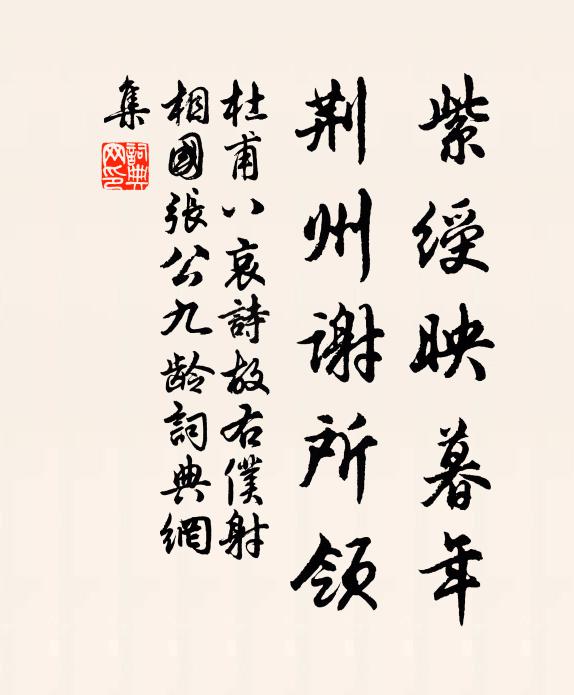 紫綬映暮年
荆州谢所領
杜甫八哀詩故右僕射
相國張公九齡詞典網
集
詞典
网印